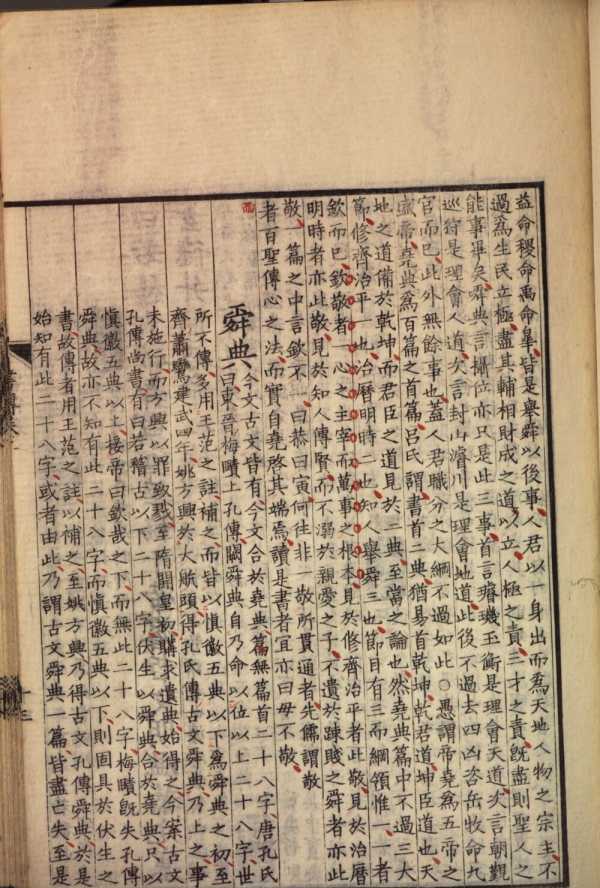 益命稷命禹命皐皆是舉舜以後事人君以一身出而為天地人物之宗主不
過為生民立極盡其輔相財成之道以立人極之責三才之責旣盡則聖人之
能事畢矣舜典言攝位亦只是此三事首言璿璣玉衡是理會天道次言朝覲
巡狩是理會人道次言封山濬川是理會地道此後不過去四凶咨岳牧命九
官而已此外無餘事也蓋人君職分之大綱不過如此○愚謂帝堯為五帝之
盛帝堯典為百篇之首篇呂氏謂書首二典猶易首乾坤乾君道坤臣道也天
地之道備於乾坤而君臣之道見於二典至當之論也然堯典篇中不過三大
節修齊治平一也治曆明時二也知人舉舜三也節目有三而綱領惟一一者
欽而已欽敬者一心之主宰而萬事之根本見於修齊治平者此敬見於治曆
明時者亦此敬見於知人傳賢而不溺於親愛之子不遺於踈賤之舜者亦此
敬一篇之中言欽不一曰恭曰寅何徃非一敬所貫通者先儒謂敬
者百聖傳心之法而實自堯啓其端焉讀是書者宜亦曰毋不敬
舜典 今文古文皆有今文合於堯典篇無篇首二十八字唐孔氏
曰東晉梅賾上孔傳闕舜典自乃命以位以上二十八字世
所不傳多用王范之註補之而皆以慎徽五典以下為舜典之初至
齊蕭鸞建武四年姚方興於大航頭得孔氏傳古文舜典乃上之事
未施行而方興以罪致戮至隋開皇初購求遺典始得之今案古文
孔傳尚書有曰若稽古以下二十八字伏生以舜典合於堯典只以
慎徽五典以上接帝曰欽哉之下而無此二十八字梅賾旣失孔傳
舜典故亦不知有此二十八字而慎徽五典以下則固具於伏生之
書故傳者用王范之註以補之至姚方興乃得古文孔傳舜典於是
始知有此二十八字或者由此乃謂古文舜典一篇皆盡亡失至是